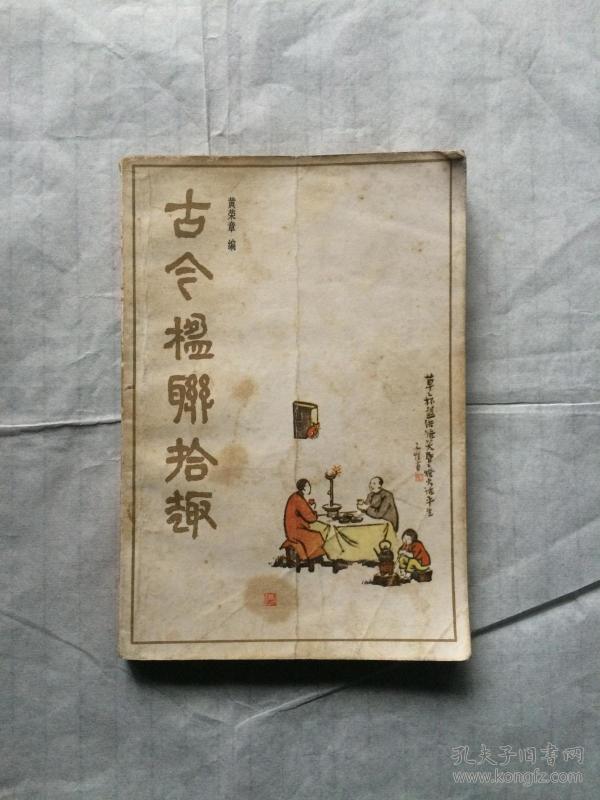 古今楹聯拾趣
黄荣章 编
草草杯盘供语笑昏昏灯火话平生
子愷畫
孔夫子旧书网
www.kongfz.com